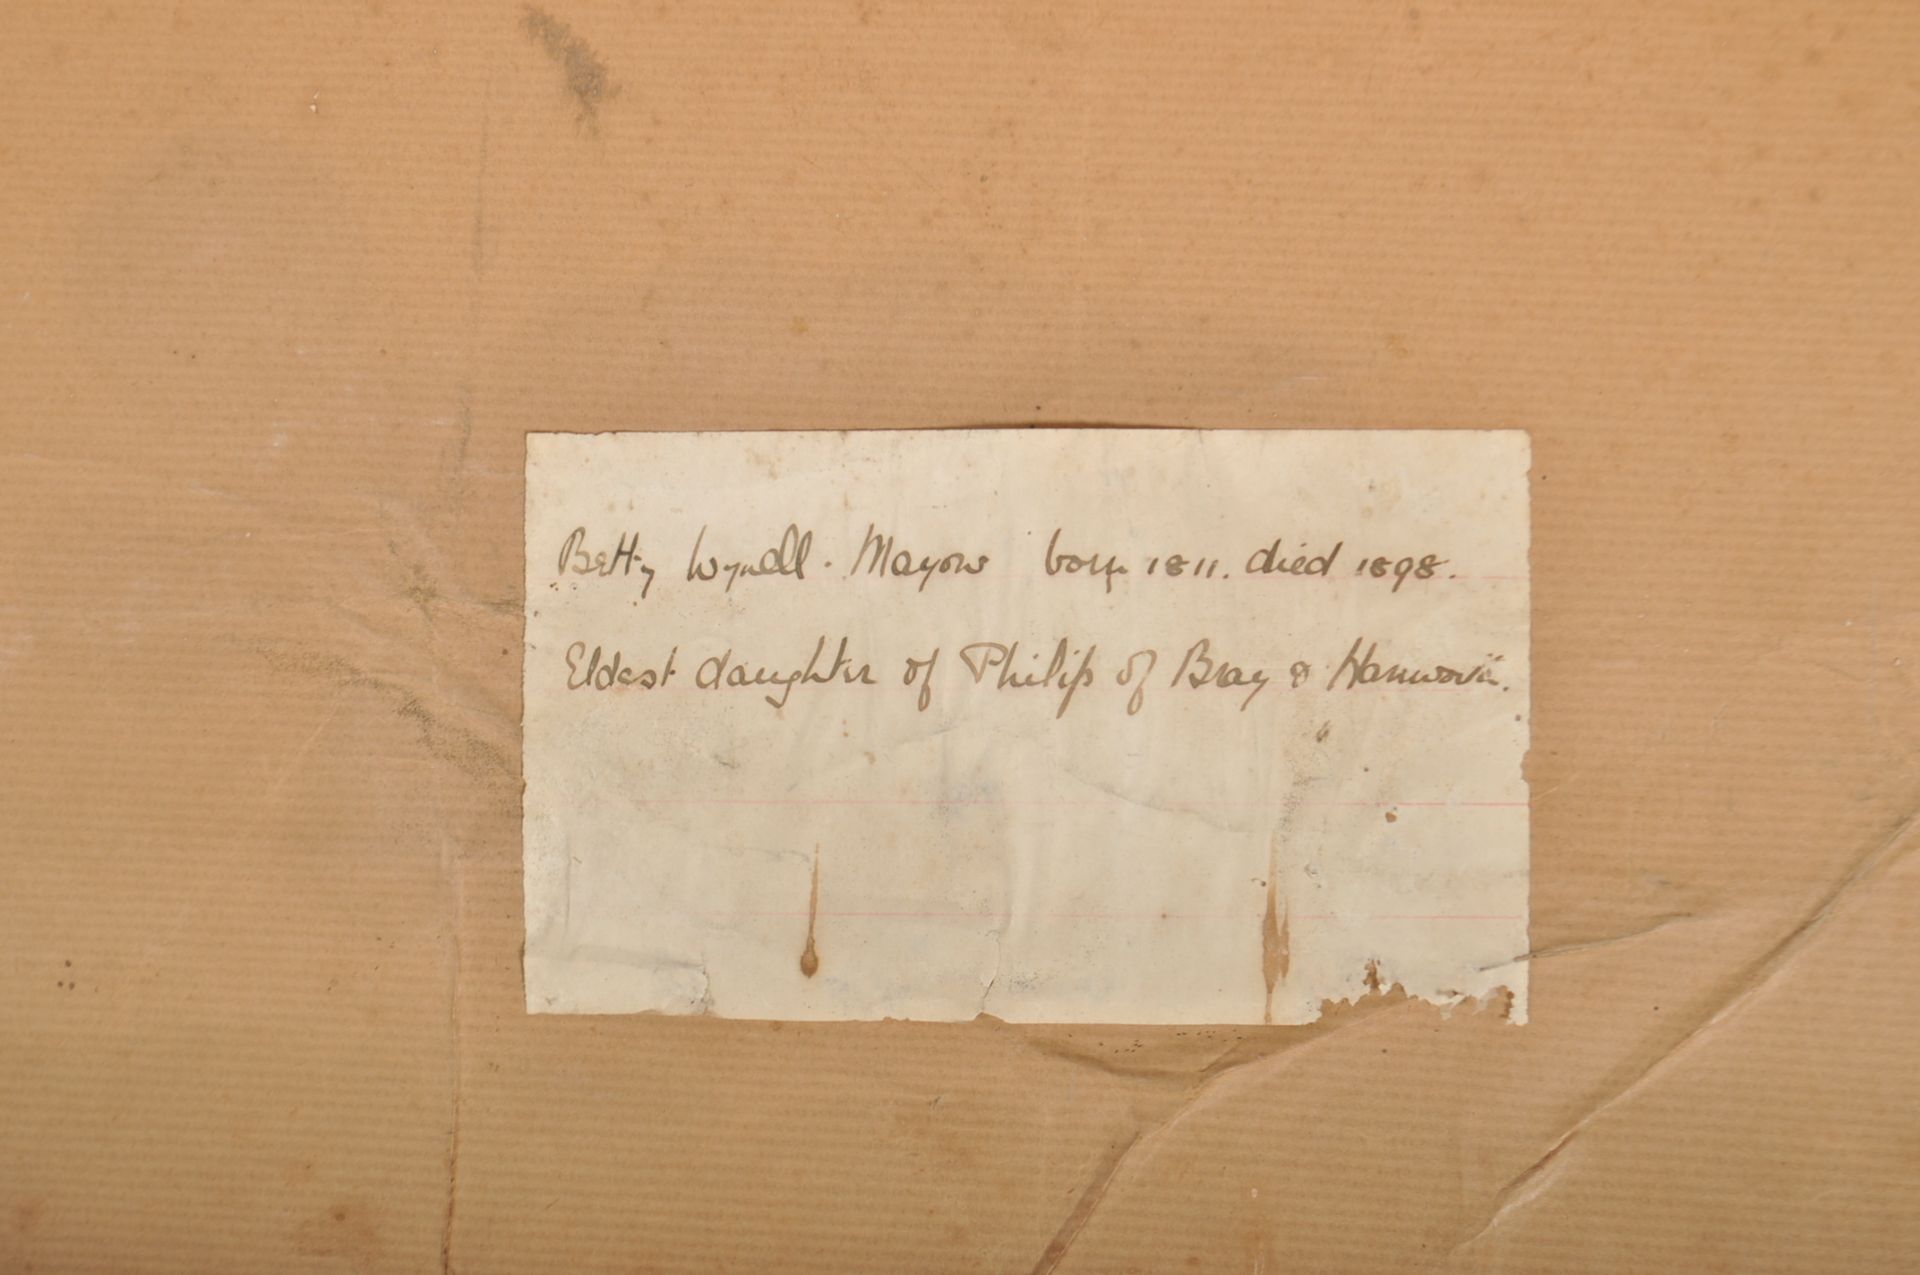 Betty Wynell. Mayow born 1811. died 1898.
Eldest daughter of Philip of Bray & Hanworth.